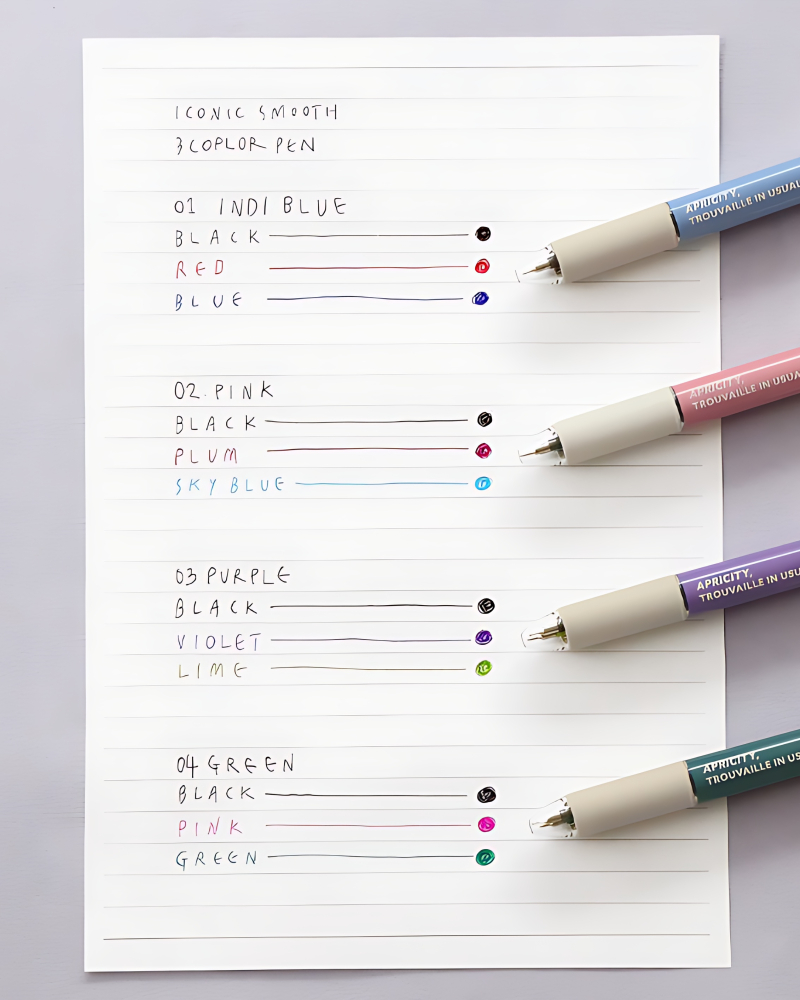 ICONIC SMOOTH
3 COPLOR PEN
01 INDI BLUE
BLACK
RED
BLUE
02. PINK
BLACK
PLUM
SKY BLUE
03 PURPLE
BLACK
VIOLET
LIME
04 GREEN
BLACK
PINK
GREEN
APRICITY,
TROUVAILLE IN USUAL
APRICITY,
TROUVAILLE IN USUA
APRICITY,
TROUVAILLE IN USU
APRICITY,
TROUVAILLE IN US